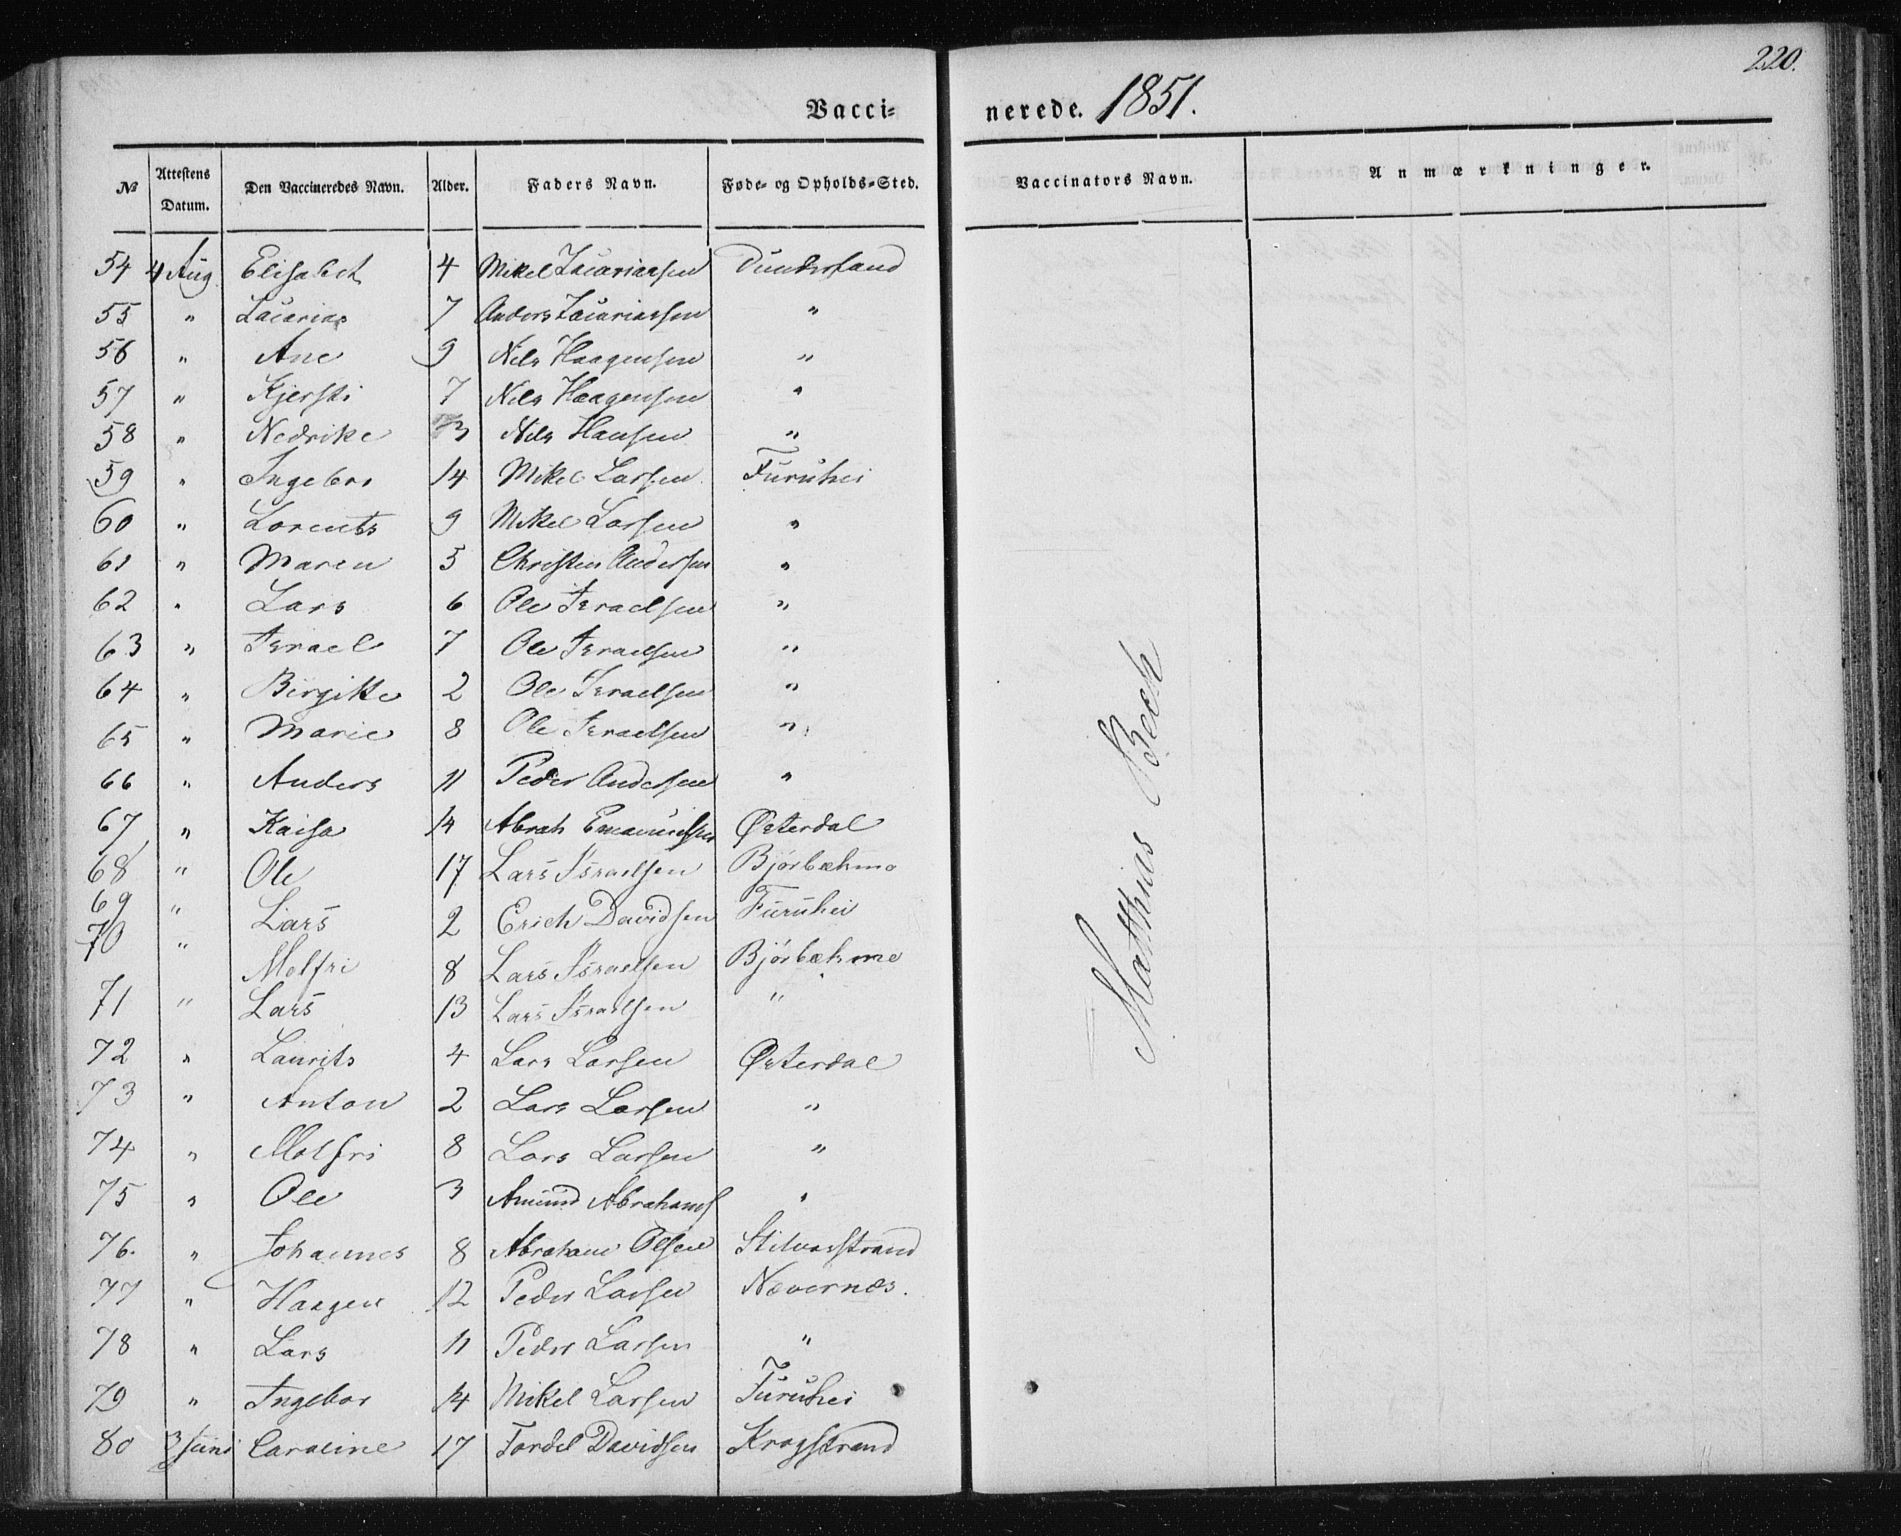 220.
Vacci- nerede. 1851.
№ Attestens Datum. Den Vaccineredes Navn. Alder. Faders Navn. Føde- og Opholds-Sted. Vaccinators Navn. Anmærkninger.
54 4 Aug Elisabet 4 Mikel Zacariassen Dunderland
55 " Zacarias 7 Anders Zacariassen "
56 " Ane 9 Nels Haagensen "
57 " Kjersti 7 Nels Haagensen "
58 " Nedrike 3 Nels Hansen "
59 " Ingebor 14 Mikel Larsen Furuhei
60 " Lorents 9 Mikel Larsen "
61 " Maren 5 Christen Andersen "
62 " Lars 6 Ole Israelsen "
63 " Israel 7 Ole Israelsen "
64 " Birgitte 2 Ole Israelsen "
65 " Marie 8 Ole Israelsen "
66 " Anders 11 Peder Andersen "
67 " Kaisa 14 Abrah Emanuelsen Østerdal
68 " Ole 17 Lars Israelsen Bjørbækmo
69 " Lars 2 Erich Davidsen Furuhei
70 " Molfri 8 Lars Israelsen Bjørbækmo
71 " Lars 13 Lars Israelsen "
72 " Laurits 4 Lars Larsen Østerdal
73 " Anton 2 Lars Larsen "
74 " Molfri 8 Lars Larsen "
75 " Ole 3 Amund Abrahams "
76. " Johannes 8 Abraham Olsen Stilvasstrand
77 " Haagen 12 Peder Larsen Nævernæs.
78 " Lars 11 Peder Larsen "
79 " Ingebor 14 Mikel Larsen Furuhei
80 3 Juni Caroline 17 Fordel Davidsen Kragstrand
Matthias Bech